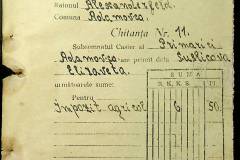 Raionul Alexanderfeld.
Comuna Adamovca.
Chitanța Nr. 11.
Subsemnatul Casier al Primăriei
Adamovca am primit dela
Elizaveta.
SUMA
următoarele sume:
Pentru
Impozit agricol 6 50